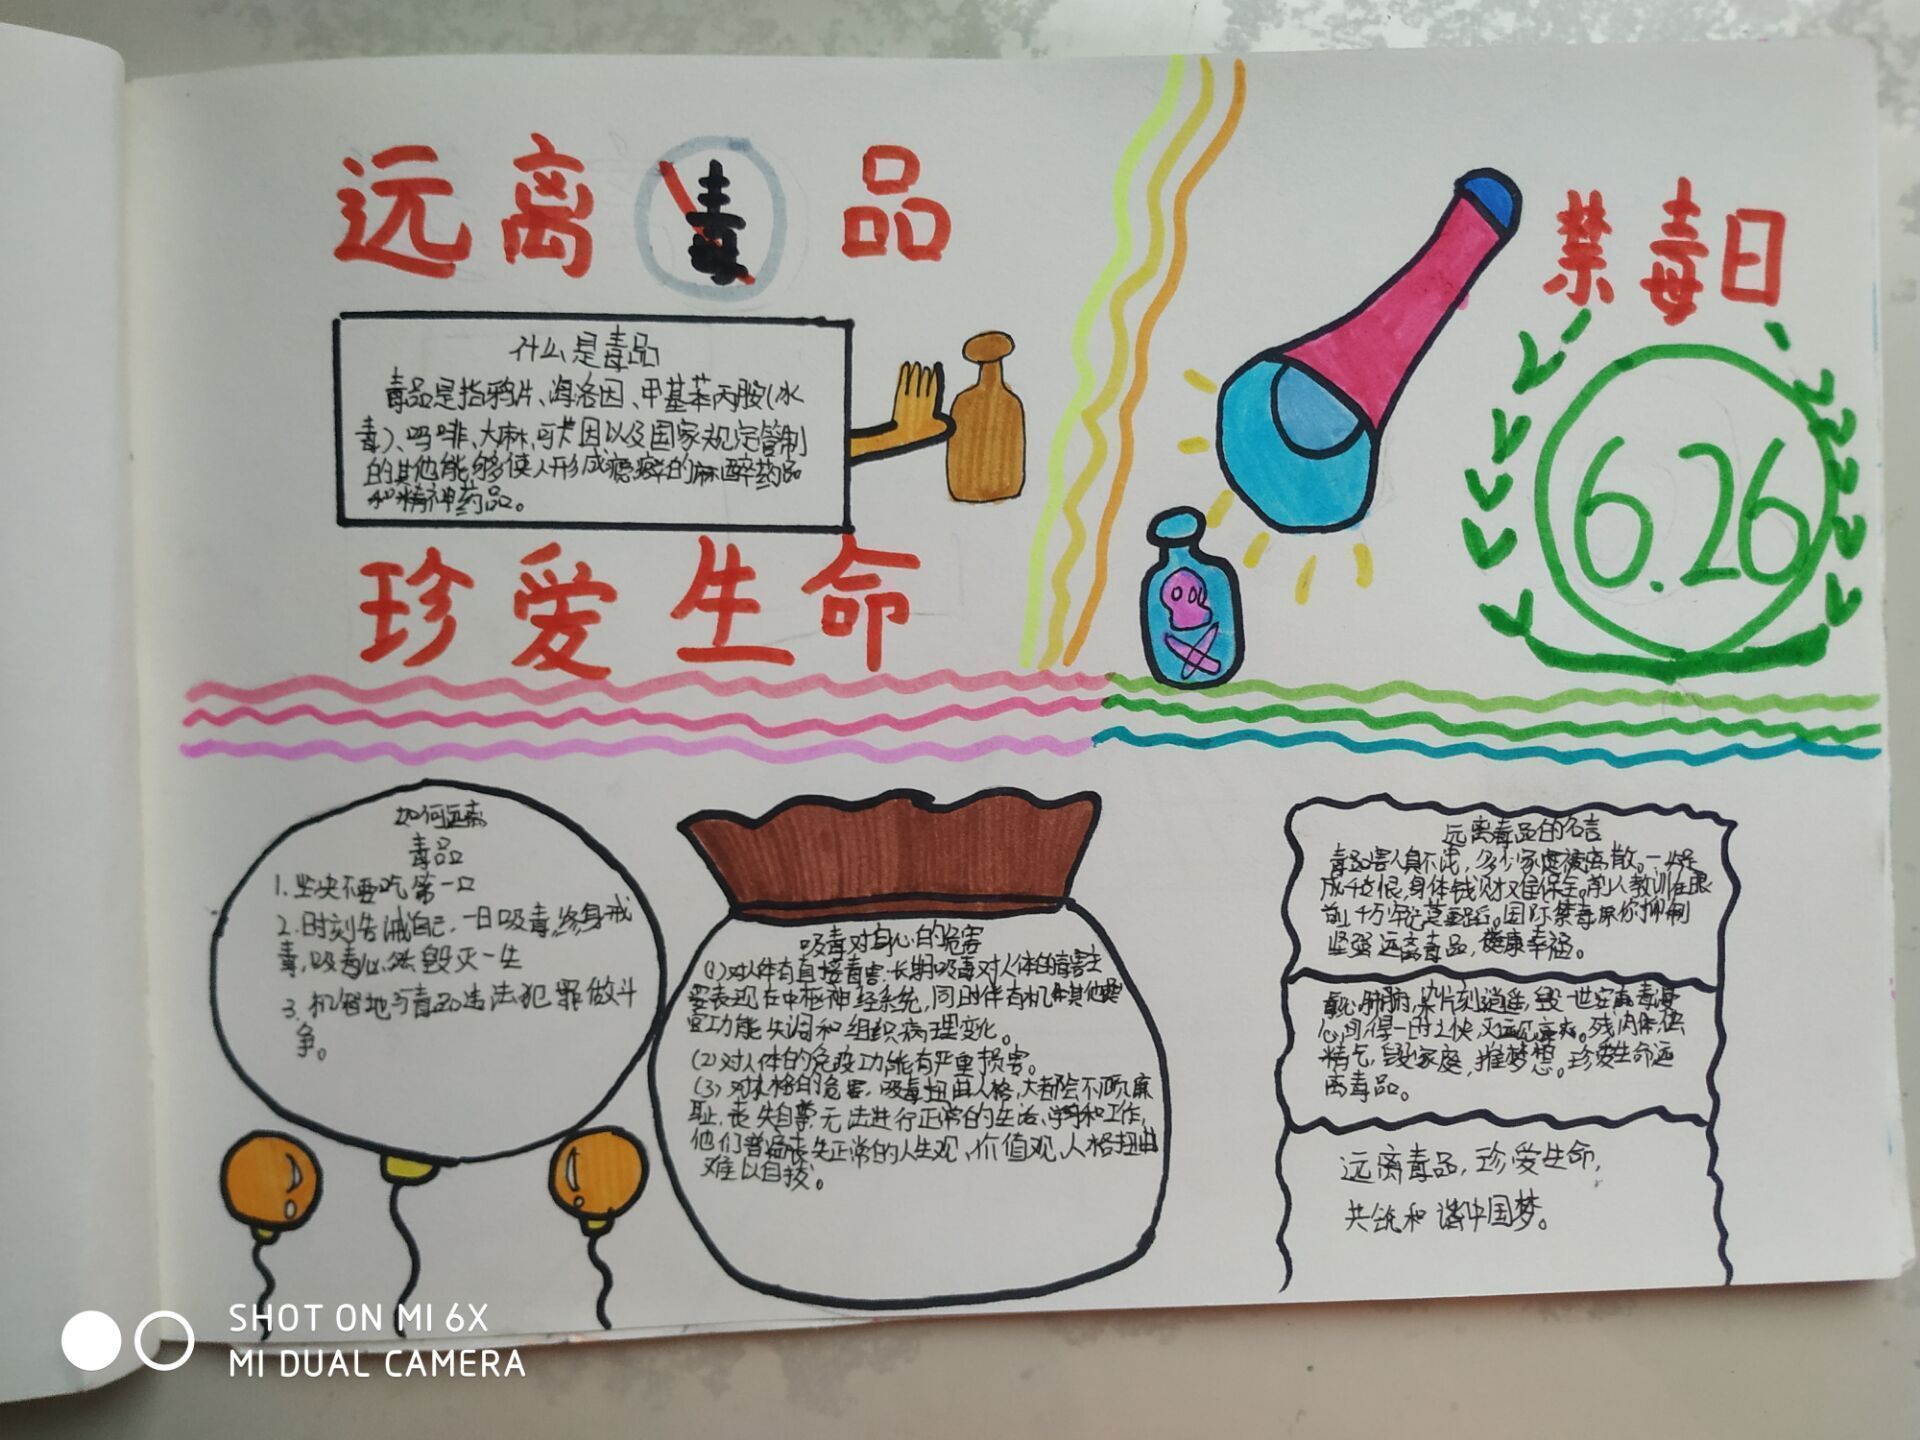 远离毒品
什么是毒品
毒品是指鸦片、海洛因、甲基苯丙胺(冰
毒)、吗啡、大麻、可卡因以及国家规定管制
的其他能够使人形成瘾癖的麻醉药品
和精神药品。
珍爱生命
禁毒日
6.26
如何远离
毒品
1.坚决不要吃第一口
2.时刻告诫自己,一日吸毒,终身戒
毒,吸毒必然毁灭一生
3.机智地与毒品违法犯罪做斗
争。
吸毒对身心的危害
(1)对人体有直接毒害:长期吸毒对人体的毒害主
要表现在中枢神经系统,同时伴有机体其他
功能失调和组织病理变化。
(2)对人体的免疫功能有严重损害。
(3)对人格的危害,吸毒扭曲人格,大都会不顾廉
耻,丧失自尊,无法进行正常的生活、学习和工作,
他们普遍丧失正常的人生观、价值观,人格扭曲
难以自拔。
远离毒品的名言
毒品害人真不浅,多少家庭被离散。一失足
成千古恨,身体钱财难保全。前人教训在眼
前,千万牢记莫重蹈。国际禁毒
坚强远离毒品,健康幸福。
片刻逍遥,毁一世
得一时之快,残肉体,
精气,毁家庭,摧梦想。珍爱生命远
离毒品。
远离毒品,珍爱生命,
共筑和谐中国梦。
SHOT ON MI 6X
MI DUAL CAMERA